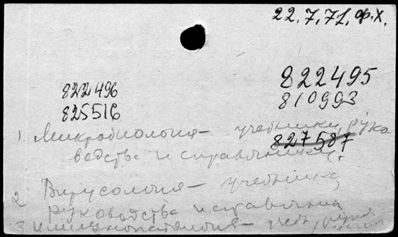 22.7.71. ф.х.
822496
825516
822495
810993
827587
1 Микробиология – учебники, руко
водства и справочники.
2 Вирусология – учебники
руководства и справочники
3 Иммунопатология –